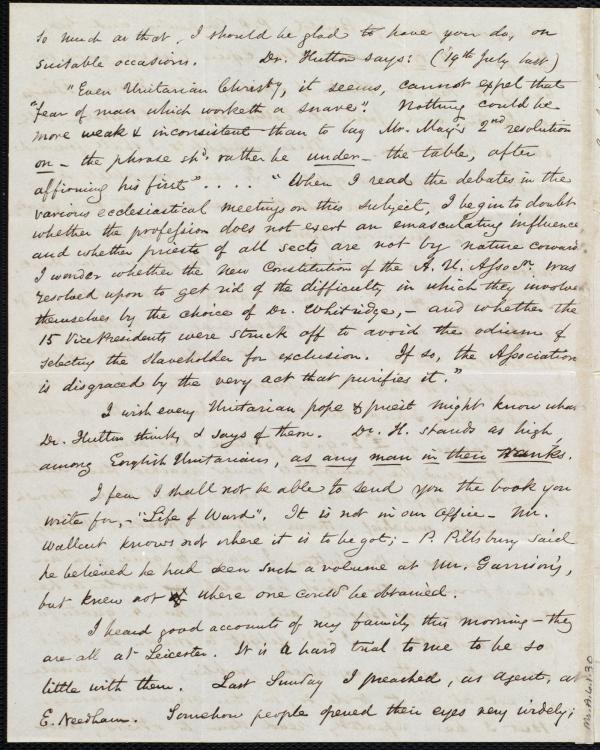 so much as that, I should be glad to have you do, on
suitable occasions. Dr. Hutton says: ('19th July last)
"Even Unitarian Christy, it seems, cannot expel that
"fear of man which worketh a snare". Nothing could be
more weak & inconsistent than to lay Mr. May's 2nd resolution
on - the phrase shd. rather be under - the table, after
affirming his first" . . . . "When I read the debates in the
various ecclesiastical meetings on this subject, I begin to doubt
whether the profession does not exert an emasculating influence
and whether priests of all sects are not by nature coward
I wonder whether the New Constitution of the A. U. Assocn. was
resolved upon to get rid of the difficulty in which they involve
themselves by the choice of Dr. Whitridge, - and whether the
15 Vice Presidents were struck off to avoid the odium of
selecting the slaveholder for exclusion. If so, the Association
is disgraced by the very act that purifies it."
I wish every Unitarian pope & priest might know what
Dr. Hutton thinks & says of them. Dr. H. stands as high,
among English Unitarians, as any man in their ranks.
I fear I shall not be able to send you the book you
write for, - "Life of Ward". It is not in our office - Mr.
Wallcut knows not where it is to be got; - P. Pillsbury said
he believed he had seen such a volume at Mr. Garrison's,
but knew not where one could be obtained.
I heard good accounts of my family this morning - they
are all at Leicester. It is a hard trial to me to be so
little with them. Last Sunday I preached, as agent, at
E. Needham. Somehow people opened their eyes very widely;
Ms.A.